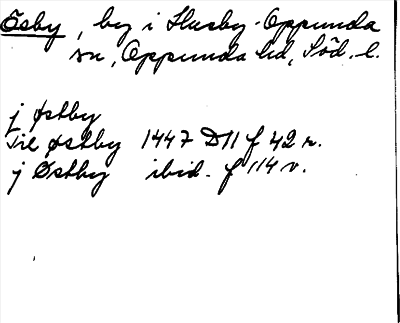 Ösby, by i Husby-Oppunda
sn, Oppunda hd, Söd. l.
j østby
Til østby 1447 D11 f 42 r.
j Østby ibid. f 114 v.